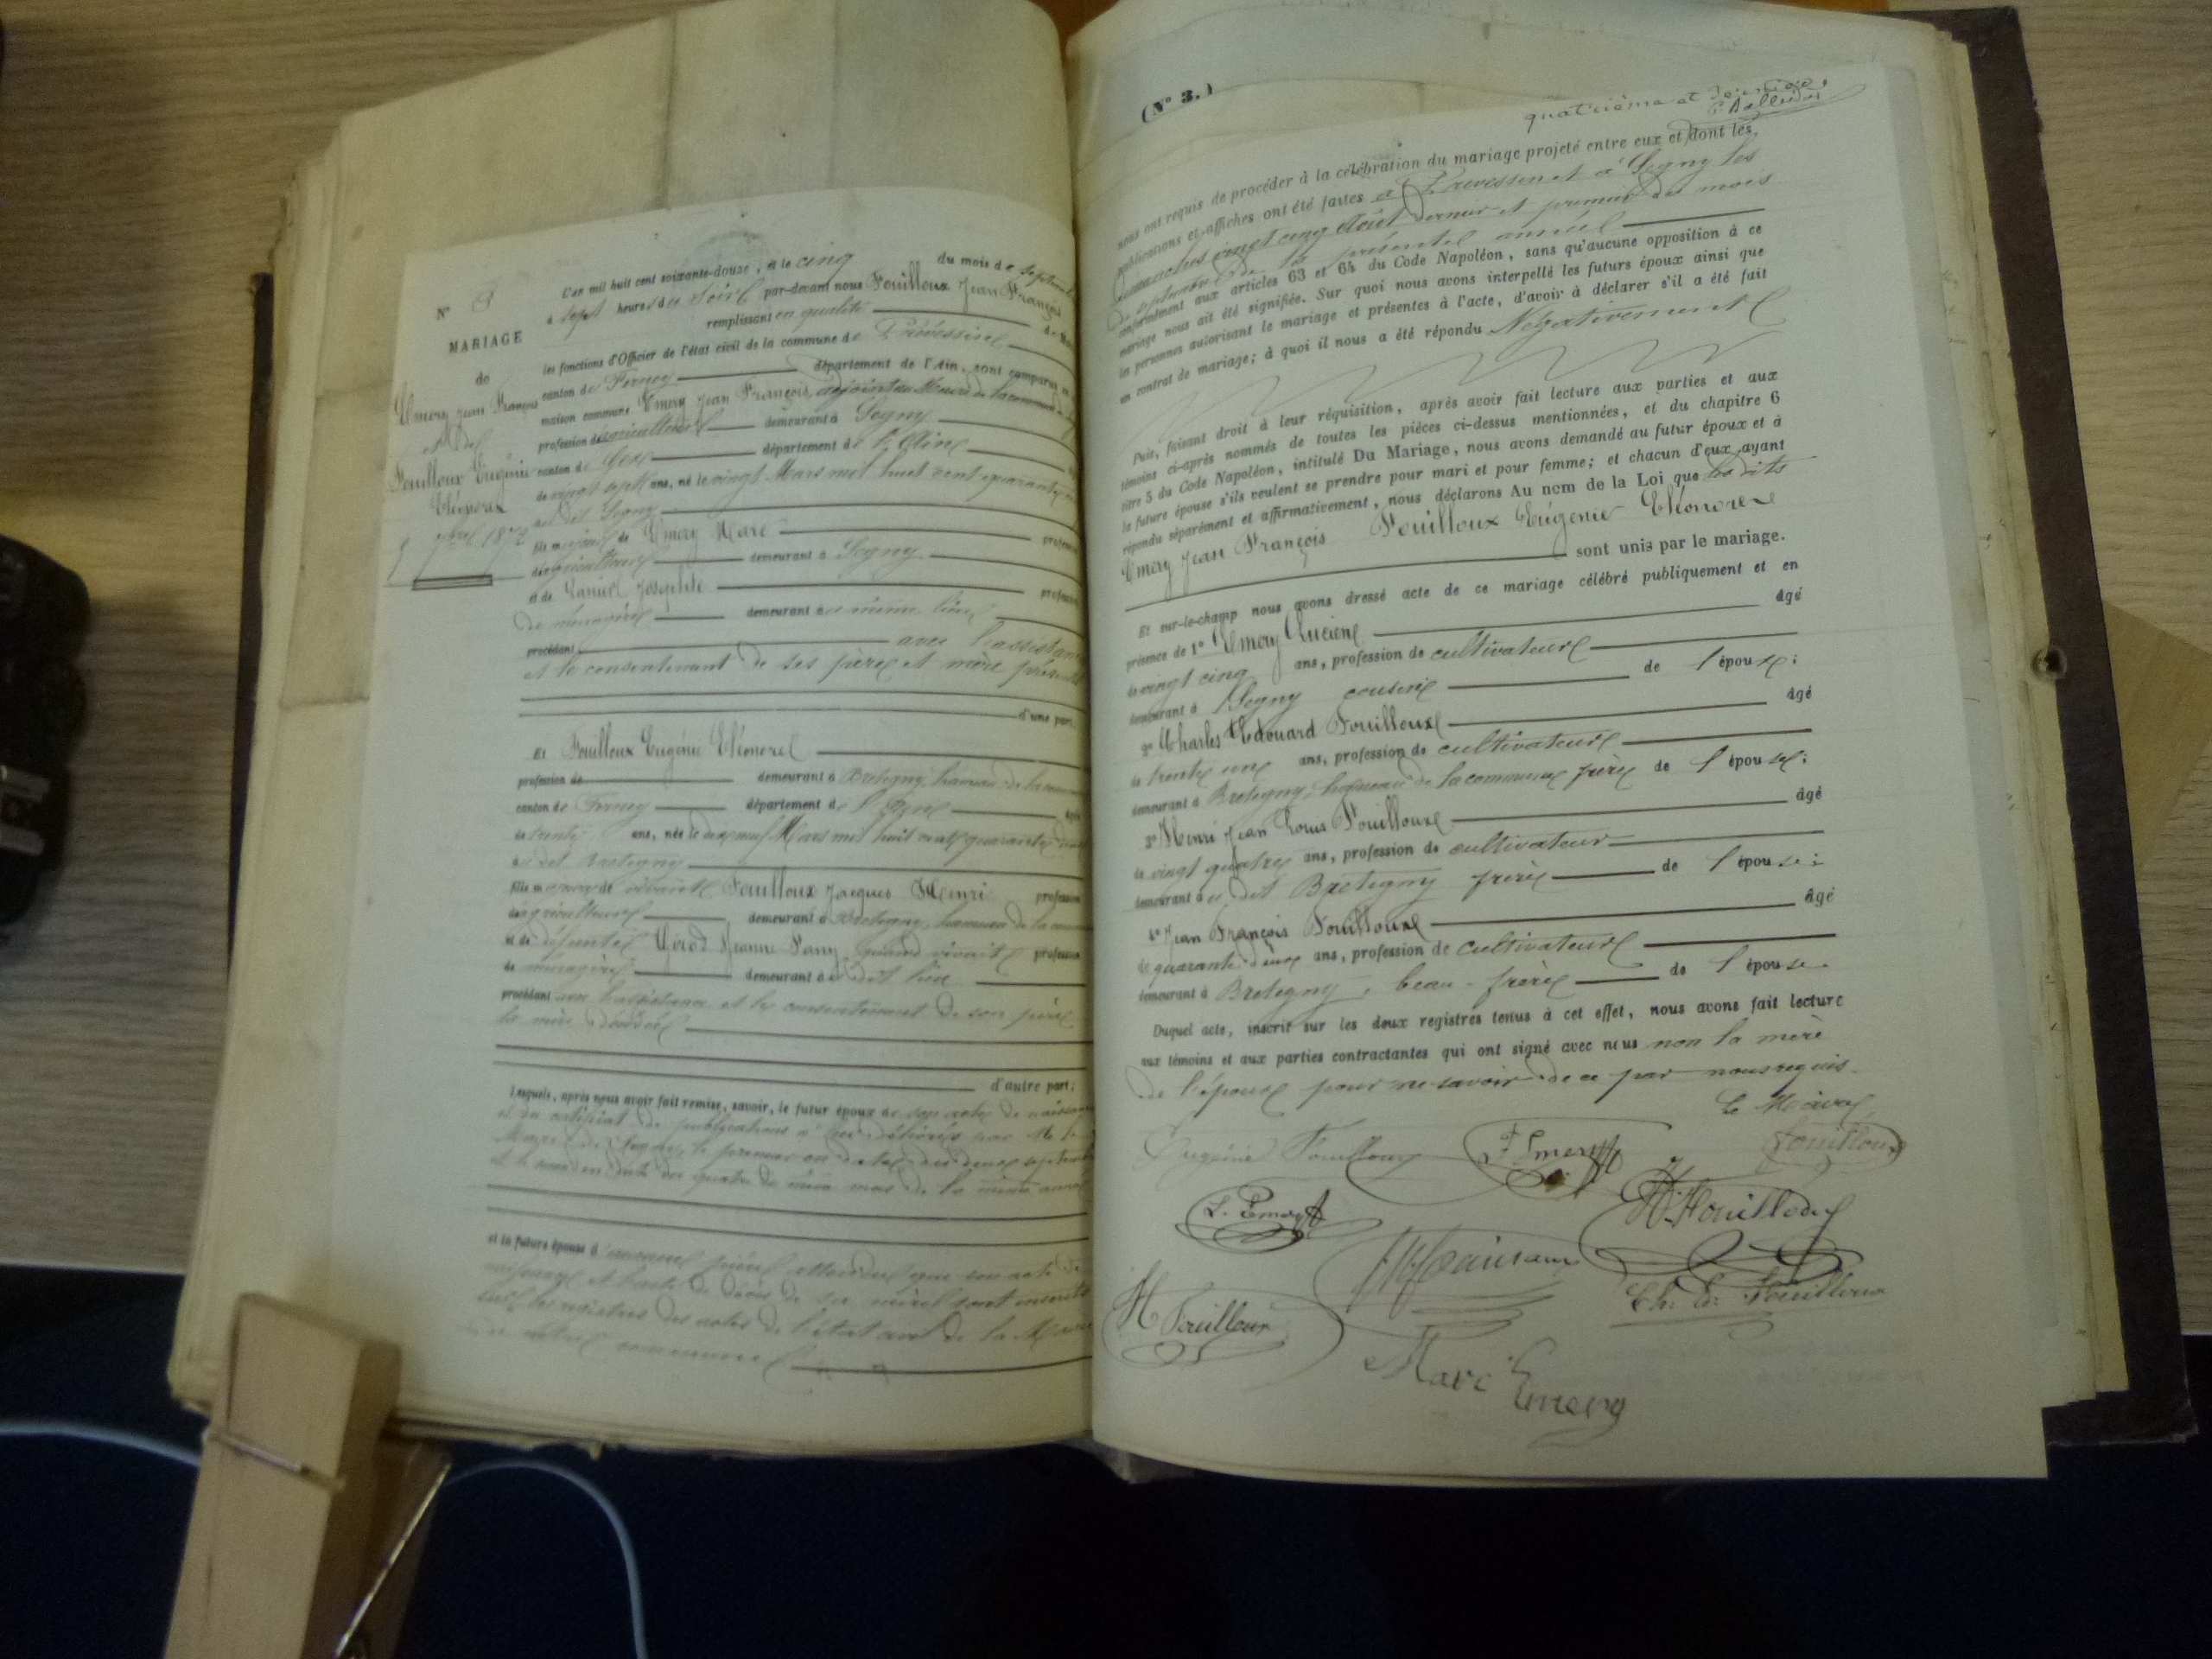 N° 3
MARIAGE
de
Emery Jean François
et de
Fouilloux Eugénie
Eléonore
5 7bre 1872
L'an mil huit cent soixante-douze, et le cinq du mois de septembre
à sept heures du soir par-devant nous Fouilloux Jean François
remplissant en qualité de
les fonctions d'Officier de l'état civil de la commune de Prévessin
canton de Ferney département de l'Ain, sont comparus en
maison commune Emery Jean François, adjoint au Maire de la commune
profession d'agriculteur demeurant à Segny
canton de Gex département de l'Ain
de vingt sept ans, né le vingt Mars mil huit cent quarante
au dit Segny
fils majeur de Emery Marc profession
d'agriculteur demeurant à Segny
et de Laniel Josephte profession
de ménagère demeurant au même lieu
procédant avec l'assistance
et le consentement de ses père et mère présents
d'une part.
Et Fouilloux Eugénie Eléonore
profession de demeurant à Bretigny hameau de la commune
canton de Ferney département de l'Ain âgée
de trente ans, née le dix neuf Mars mil huit cent quarante deux
au dit Bretigny
fille majeure de vivant Fouilloux Jacques Henri profession
d'agriculteur demeurant à Bretigny, hameau de la commune
et de défunte Gérod Jeanne Fany, quand vivait profession
de ménagère demeurant au dit lieu
procédant avec l'assistance et le consentement de son père
la mère décédée
d'autre part;
Lesquels, après nous avoir fait remise, savoir, le futur époux de son acte de naissance
et du certificat de publications à lui délivrés par Mr le
Maire de Segny, le premier en date du deux septembre
et le second en date du quatre du même mois de la même année
et la future épouse d'aucune pièce attendu que son acte de
naissance et l'acte de décès de sa mère sont inscrits
sur les registres des actes de l'état civil de la Mairie
de cette commune
(N° 3.)
quatrième et
nous ont requis de procéder à la célébration du mariage projeté entre eux et dont les
publications et affiches ont été faites à Prevessin et à Segny les
dimanches vingt cinq Août dernier et premier du mois
de septembre de la présente année
conformément aux articles 63 et 64 du Code Napoléon, sans qu'aucune opposition à ce
mariage nous ait été signifiée. Sur quoi nous avons interpellé les futurs époux ainsi que
les personnes autorisant le mariage et présentes à l'acte, d'avoir à déclarer s'il a été fait
un contrat de mariage; à quoi il nous a été répondu Négativement
Puis, faisant droit à leur réquisition, après avoir fait lecture aux parties et aux
témoins ci-après nommés de toutes les pièces ci-dessus mentionnées, et du chapitre 6
titre 5 du Code Napoléon, intitulé Du Mariage, nous avons demandé au futur époux et à
la future épouse s'ils veulent se prendre pour mari et pour femme; et chacun d'eux ayant
répondu séparément et affirmativement, nous déclarons Au nom de la Loi que les dits
Emery Jean François Fouilloux Eugénie Eléonore
sont unis par le mariage.
Et sur-le-champ nous avons dressé acte de ce mariage célébré publiquement et en
présence de 1° Emery Lucien âgé
de vingt cinq ans, profession de cultivateur
demeurant à Segny cousin de l'époux;
2° Charles Edouard Fouilloux âgé
de trente une ans, profession de cultivateur
demeurant à Bretigny, hameau de la commune frère de l'épouse;
3° Henri Jean Louis Fouilloux âgé
de vingt quatre ans, profession de cultivateur
demeurant au dit Bretigny frère de l'épouse;
4° Jean François Fouilloux âgé
de quarante deux ans, profession de cultivateur
demeurant à Bretigny, beau-frère de l'épouse.
Duquel acte, inscrit sur les deux registres tenus à cet effet, nous avons fait lecture
aux témoins et aux parties contractantes qui ont signé avec nous non la mère
de l'époux pour ne savoir de ce par nous requis.
Le Maire
Eugénie Fouilloux F. Emery Fouilloux
L. Emery H. Fouilloux
H Fouilloux Ch. Ed. Fouilloux
Marc Emery